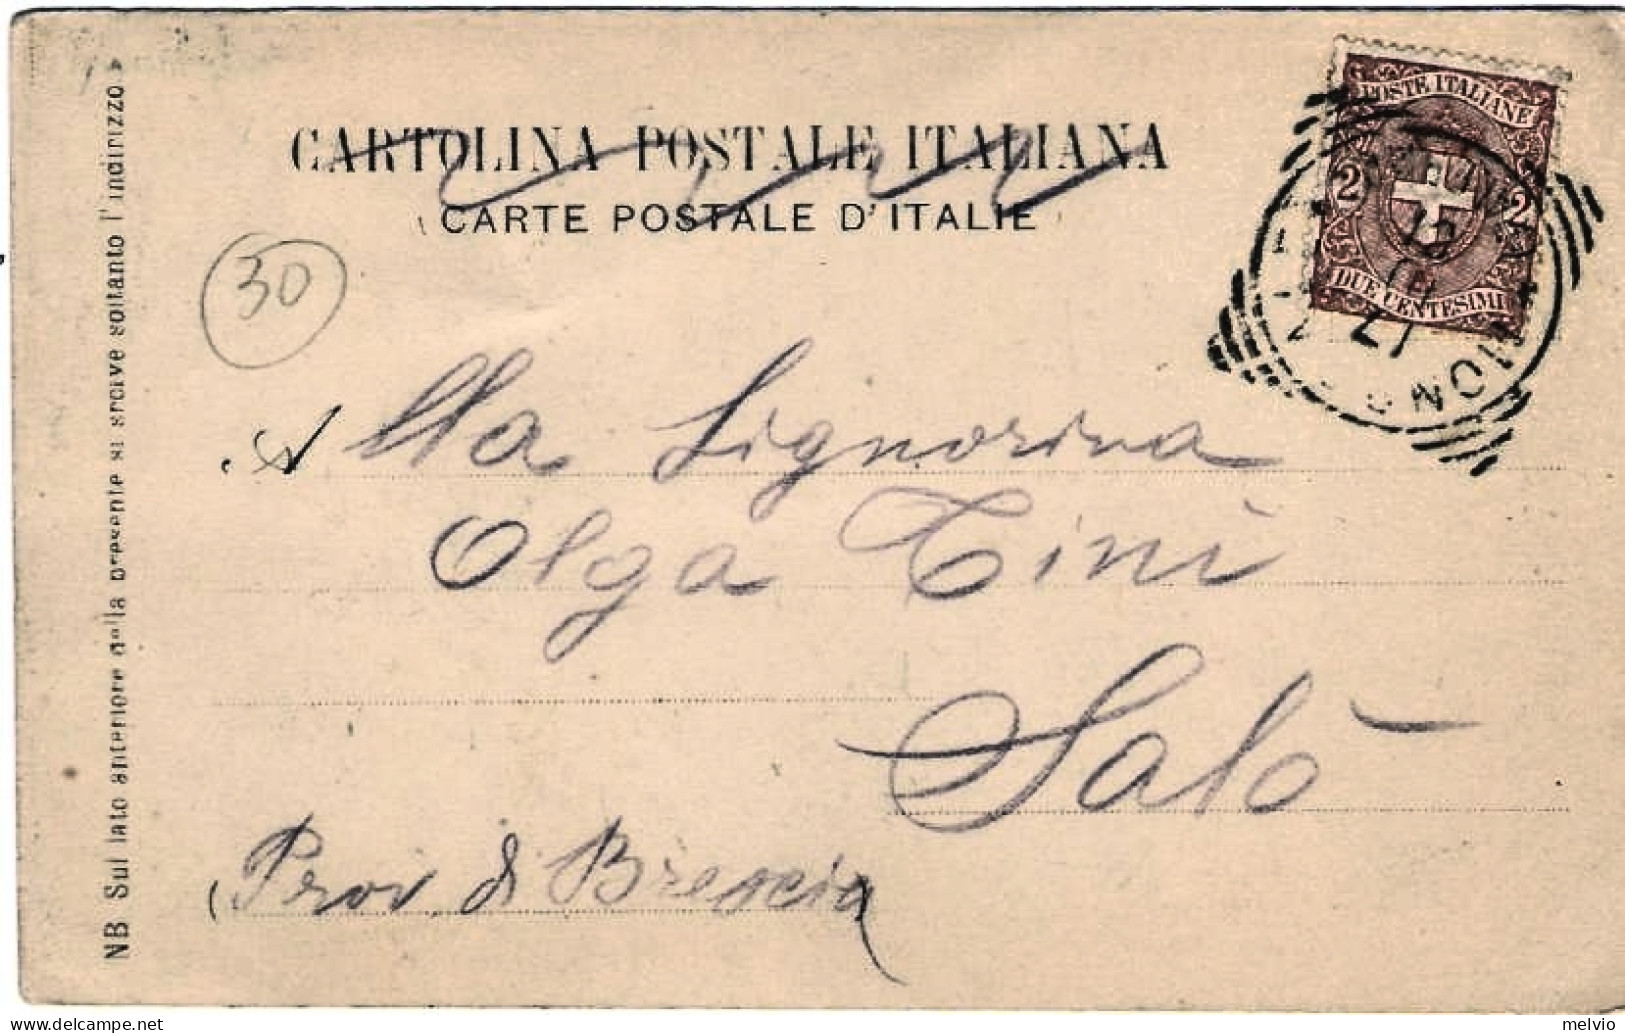 CARTOLINA POSTALE ITALIANA
CARTE POSTALE D'ITALIE
POSTE ITALIANE
2 2
DUE CENTESIMI
30
Alla Signorina
Olga Tini
Salò
Prov di Brescia
NB Sul lato anteriore della presente si srcive soltanto l'indirizzo.
melvio